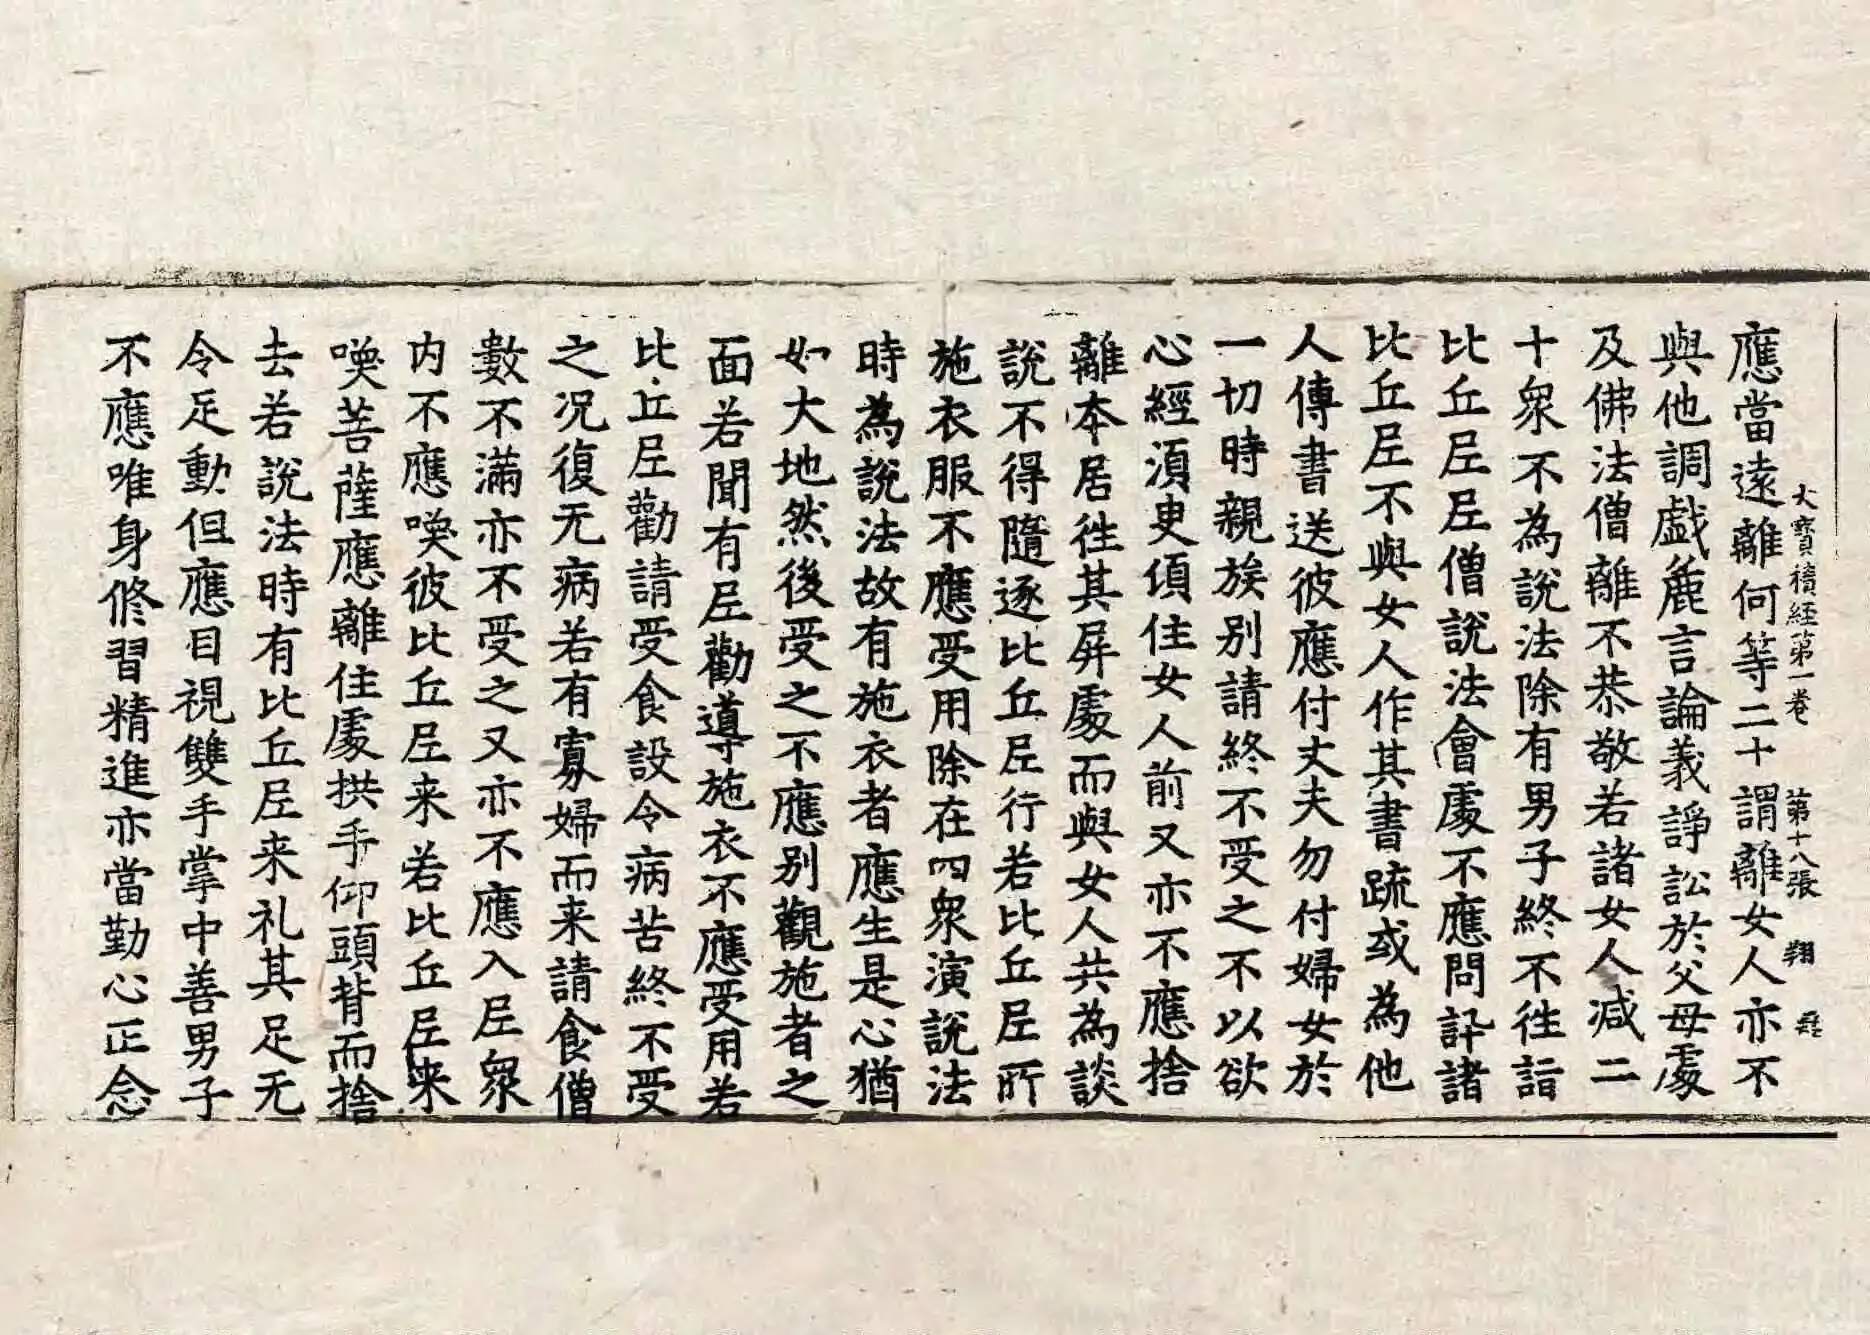 應當遠離何等二十謂離女人亦不
大寶積經第一卷　第十八張　翔
與他調戲麁言論義諍訟於父母處
及佛法僧離不恭敬若諸女人減二
十衆不為說法除有男子終不徃詣
比丘尼尼僧說法會處不應問訃諸
比丘尼不與女人作其書疏或為他
人傳書送彼應付丈夫勿付婦女於
一切時親族别請終不受之不以欲
心經湏臾頃住女人前又亦不應捨
離本居徃其屏處而與女人共為談
說不得隨逐比丘尼行若比丘尼所
施衣服不應受用除在四衆演說法
時為說法故有施衣者應生是心猶
如大地然後受之不應别觀施者之
面若聞有尼勸導施衣不應受用若
比丘尼勸請受食設令病苦終不受
之况復无病若有寡婦而来請食僧
數不滿亦不受之又亦不應入尼衆
内不應喚彼比丘尼来若比丘尼来
喚菩薩應離住處拱手仰頭背而捨
去若說法時有比丘尼来礼其足无
令足動但應目視雙手掌中善男子
不應唯身修習精進亦當勤心正念